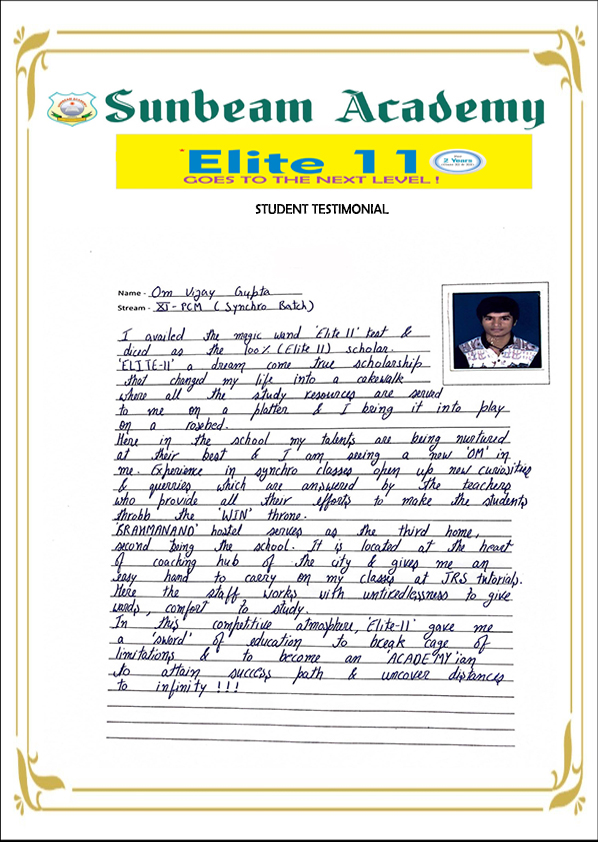 Sunbeam Academy
Elite 11
2 Years
GOES TO THE NEXT LEVEL !
STUDENT TESTIMONIAL
Name - Om Vijay Gupta
Stream - XI - PCM ( Synchro Batch)
I availed the magic wand 'Elite 11' test &
diced as the 100% (Elite 11) scholar.
'ELITE-11' a dream come true scholarship
that changed my life into a cakewalk
where all the study resources are served
to me on a platter & I bring it into play
on a rosebed.
Here in the school my talents are being nurtured
at their best & I am seeing a new 'OM' in
me. Experience in synchro classes open up new curiosities
& querries which are answered by the teachers
who provide all their efforts to make the students
throbb the 'WIN' throne.
'BRAHMANAND' hostel serves as the third home,
second being the school. It is located at the heart
of coaching hub of the city & gives me an
easy hand to carry on my classes at JRS tutorials.
Here the staff works with untiredlessness to give
wards, comfort to study.
In this competitive atmosphere, 'Elite-11' gave me
a 'sword' of education to break cage of
limitations & to become an 'ACADEMY'ian
to attain success path & uncover distances
to infinity !!!